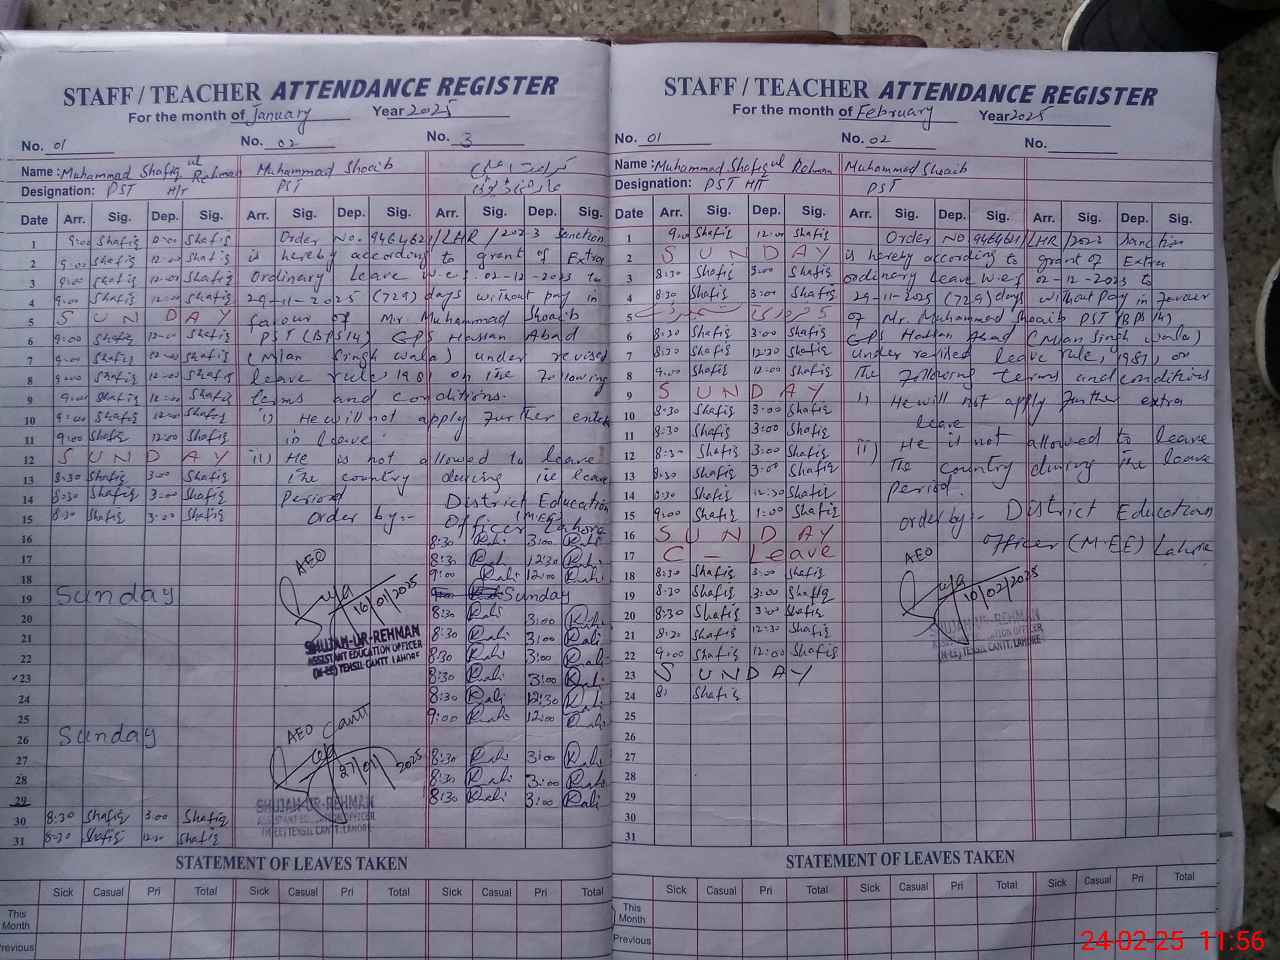 STAFF / TEACHER ATTENDANCE REGISTER
For the month of January Year 2025
No. 01 No. 02 No. 3
Name: Muhammad Shafiq ul Rehman Muhammad Shoaib
Designation: PST H/T PST
Date Arr. Sig. Dep. Sig. Arr. Sig. Dep. Sig. Arr. Sig. Dep. Sig.
1 9:00 Shafiq 12:00 Shafiq Order No. 9464621/LHR/2023 Sanction
2 9:00 Shafiq 12:00 Shafiq is hereby according to grant of Extra
3 9:00 Shafiq 12:00 Shafiq Ordinary Leave w.e.f. 02-12-2023 to
4 9:00 Shafiq 12:00 Shafiq 29-11-2025 (729) days without pay in
5 SUNDAY favour of Mr. Muhammad Shoaib
6 9:00 Shafiq 12:00 Shafiq PST (BPS14) GPS Hassan Abad
7 9:00 Shafiq 12:00 Shafiq (Mian Singh wala) under revised
8 9:00 Shafiq 12:00 Shafiq leave rule, 1981 on the following
9 9:00 Shafiq 12:00 Shafiq terms and conditions.
10 9:00 Shafiq 12:00 Shafiq i) He will not apply further
11 9:00 Shafiq 12:00 Shafiq in leave.
12 SUNDAY ii) He is not allowed to leave
13 8:30 Shafiq 3:00 Shafiq the country during leave
14 8:30 Shafiq 3:00 Shafiq Period District Education
15 8:30 Shafiq 3:00 Shafiq Order by:- Officer (M-EE) Lahore
16 8:30 Rali 3:00 Rali
17 8:30 Rali 12:30 Rali
18 AEO 9:00 Rali 12:00 Rali
19 Sunday 16/01/2025 Sunday
20 8:30 Rali 3:00 Rali
21 SHUJAH-UR-REHMAN 8:30 Rali 3:00 Rali
22 ASSISTANT EDUCATION OFFICER 8:30 Rali 3:00 Rali
23 (M-EE) TEHSIL CANTT. LAHORE 8:30 Rali 3:00 Rali
24 8:30 Rali 12:30 Rali
25 AEO Cantt 9:00 Rali 12:00 Rali
26 Sunday
27 27/01/2025 8:30 Rali 3:00 Rali
28 8:30 Rali 3:00 Rali
29 SHUJAH-UR-REHMAN 8:30 Rali 3:00 Rali
30 8:30 Shafiq 3:00 Shafiq ASSISTANT EDUCATION OFFICER
31 8:30 Shafiq 12:30 Shafiq (M-EE) TEHSIL CANTT. LAHORE
STATEMENT OF LEAVES TAKEN
Sick Casual Pri Total Sick Casual Pri Total Sick Casual Pri Total
This Month
Previous
STAFF / TEACHER ATTENDANCE REGISTER
For the month of February Year 2025
No. 01 No. 02 No.
Name: Muhammad Shafiq ul Rehman Muhammad Shoaib
Designation: PST H/T PST
Date Arr. Sig. Dep. Sig. Arr. Sig. Dep. Sig. Arr. Sig. Dep. Sig.
1 9:00 Shafiq 12:00 Shafiq Order NO 9464621/LHR/2023 Sanction
2 SUNDAY is hereby according to grant of Extra
3 8:30 Shafiq 3:00 Shafiq ordinary leave w.e.f 02-12-2023 to
4 8:30 Shafiq 3:00 Shafiq 29-11-2025 (729) days without pay in favour
5 of Mr. Muhammad Shoaib PST (BPS 14)
6 8:30 Shafiq 3:00 Shafiq GPS Hassan Abad (Mian Singh wala)
7 8:30 Shafiq 12:30 Shafiq under revised leave rule, 1981, on
8 9:00 Shafiq 12:00 Shafiq The following terms and conditions
9 SUNDAY i) He will not apply further extra
10 8:30 Shafiq 3:00 Shafiq leave
11 8:30 Shafiq 3:00 Shafiq ii) He is not allowed to leave
12 8:30 Shafiq 3:00 Shafiq The country during the leave
13 8:30 Shafiq 3:00 Shafiq Period.
14 8:30 Shafiq 12:30 Shafiq
15 9:00 Shafiq 1:00 Shafiq order by:- District Education
16 SUNDAY Officer (M-EE) Lahore
17 C - Leave AEO
18 8:30 Shafiq 3:00 Shafiq
19 8:30 Shafiq 3:00 Shafiq 10/02/2025
20 8:30 Shafiq 3:00 Shafiq SHUJAH-UR-REHMAN
21 8:30 Shafiq 12:30 Shafiq ASSISTANT EDUCATION OFFICER
22 9:00 Shafiq 12:00 Shafiq (M-EE) TEHSIL CANTT. LAHORE
23 SUNDAY
24 8: Shafiq
25
26
27
28
29
30
31
STATEMENT OF LEAVES TAKEN
Sick Casual Pri Total Sick Casual Pri Total Sick Casual Pri Total
This Month
Previous
24-02-25 11:56